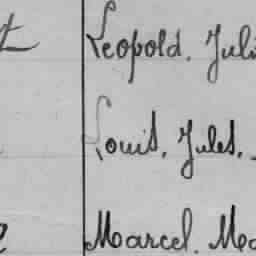 Leopold. Juli
Louis. Jules.
Marcel. Ma